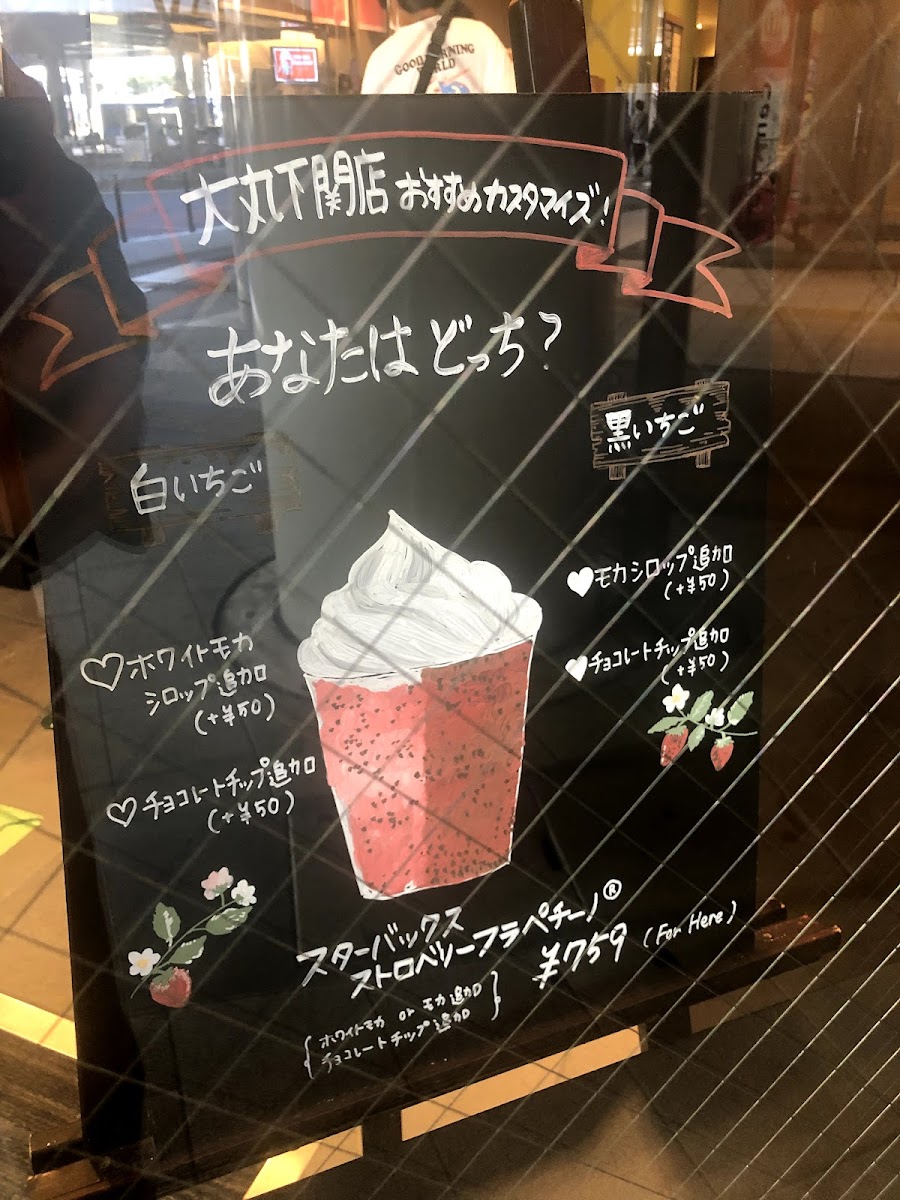 GOOD MORNING
WORLD
大丸下関店 おすすめカスタマイズ!
あなたは どっち?
黒いちご
白いちご
モカシロップ追加
(+¥50)
チョコレートチップ追加
(+¥50)
ホワイトモカ
シロップ追加
(+¥50)
チョコレートチップ追加
(+¥50)
スターバックス
ストロベリーフラペチーノ®
¥759 (For Here)
ホワイトモカ or モカ追加
チョコレートチップ追加